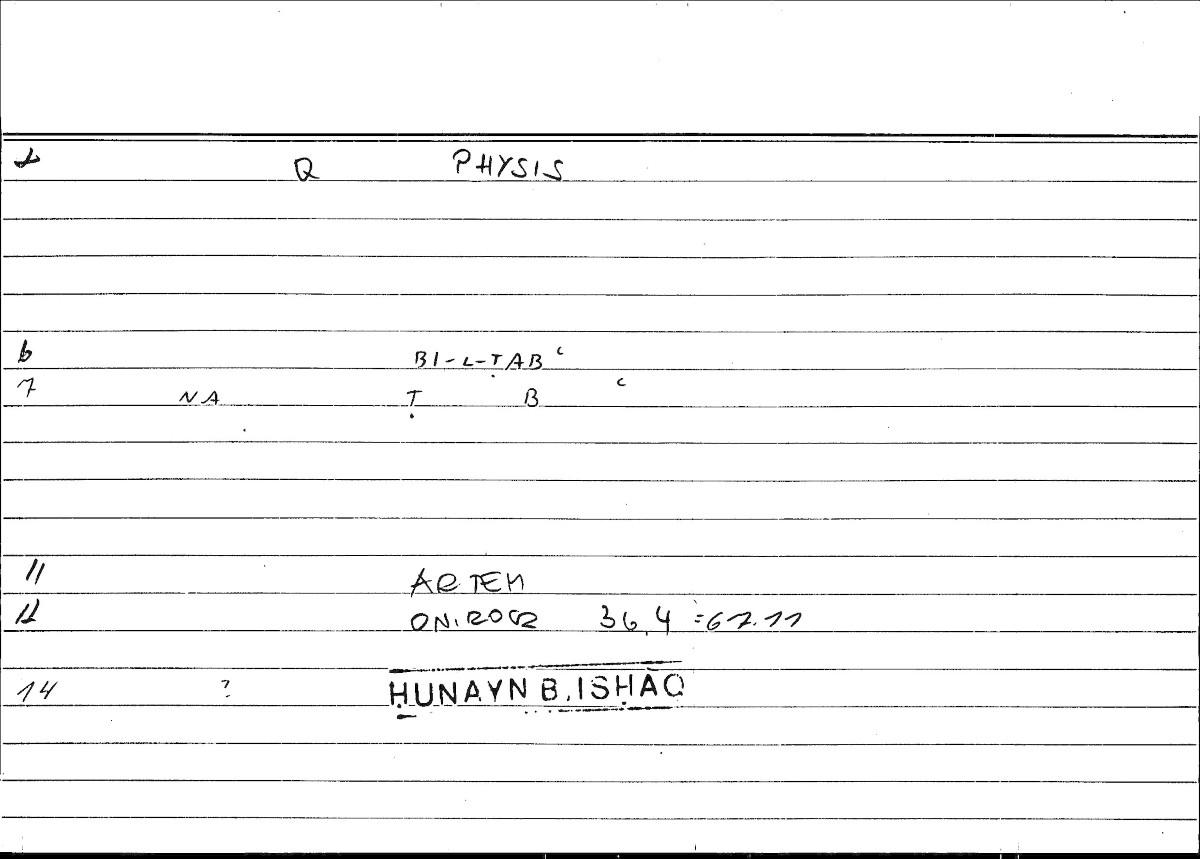 1 Q PHYSIS
6 BI-L-ṬABʿ
7 NA Ṭ B ʿ
11 ARTEM
12 ONIROCR 36,4 = 67.11
14 ? ḤUNAYN B. ISḤĀQ